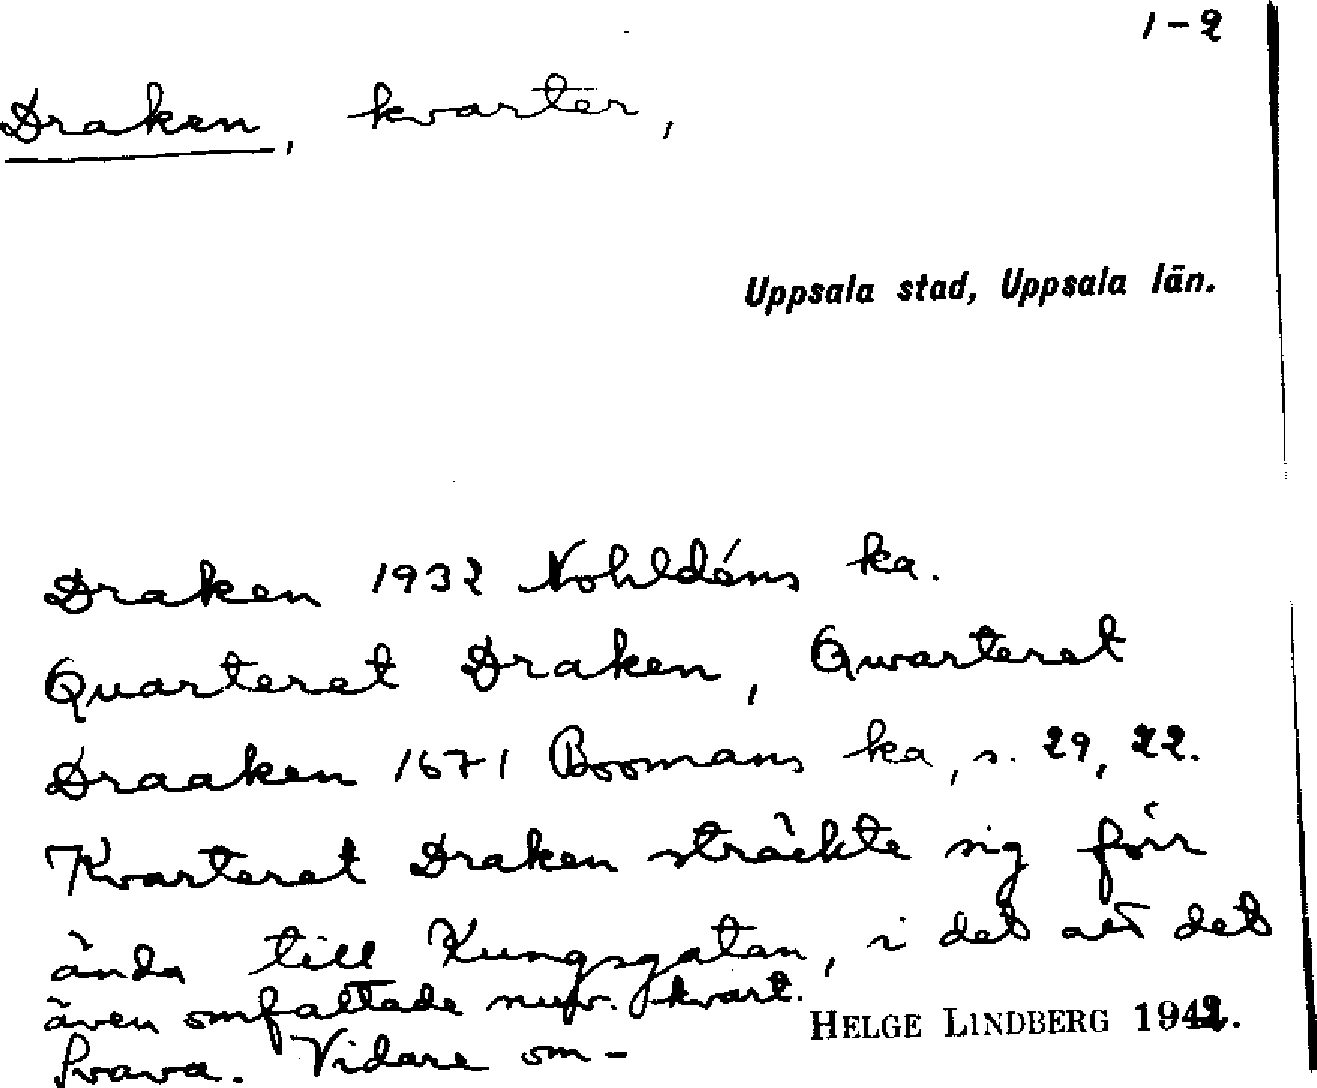 1-2
Draken, kvarter,
Uppsala stad, Uppsala län.
Draken 1932 Nohldéns ka.
Quarteret Draken, Qwarteret
Draaken 1671 Boomans ka, s. 29, 22.
Kvarteret Draken sträckte sig förr
ända till Kungsgatan, i det att det
även omfattade nuv. kvart.
Svava. Vidare om-
HELGE LINDBERG 1942.